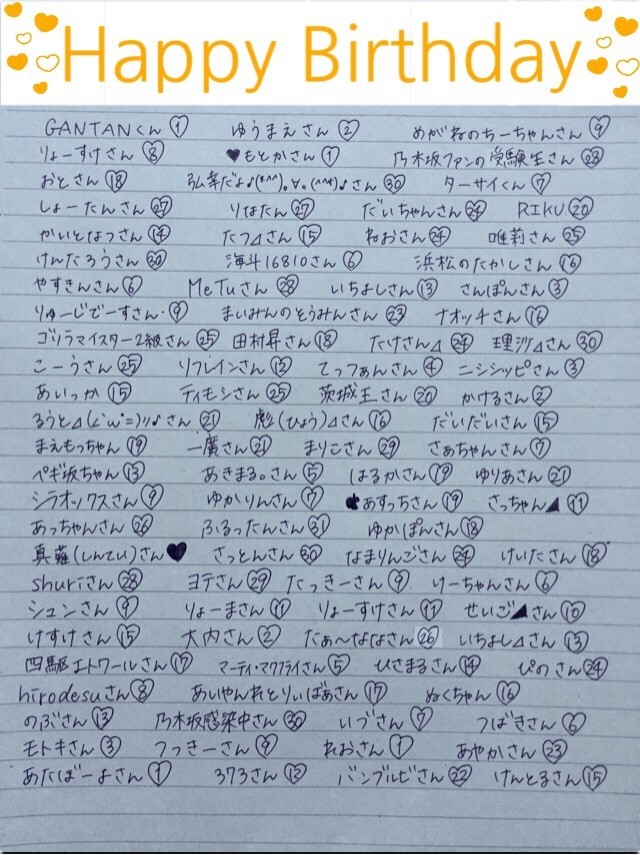 Happy Birthday
GANTANくん ① ゆうまえさん ② めがねのちーちゃんさん ⑨
りょーすけさん ⑧ ♥もとかさん ① 乃木坂ファンの受験生さん ㉘
おとさん ⑱ 弘幸だよ♪(*^^)o∀o(^^*)♪さん ㉚ ターサイくん ⑦
しょーたんさん ㉗ りなたん ㉗ だいちゃんさん ㉔ RIKU ⑳
かいとなつさん ⑭ たつ⊿さん ⑮ ねおさん ㉔ 唯莉さん ㉕
けんたろうさん ㉚ 海斗16810さん ⑥ 浜松のたかしさん ⑯
やすきんさん ⑥ MeTuさん ㉘ いちよしさん ⑬ さんぽんさん ③
りゅーじでーすさん・⑨ まいみんのとうみんさん ㉓ ナオッチさん ⑯
ゴリラマイスター2級さん ㉕ 田村昇さん ⑱ たけさん⊿ ㉔ 理沙⊿さん ㉚
こーうさん ㉕ リフレインさん ⑫ てっつぁんさん ④ ニシシッピさん ③
あいっか ⑮ ティモシさん ㉕ 茨城王さん ⑳ かけるさん ②
ろうと⊿(ζ'ω'=)ソ♪さん ㉑ 彪(ひょう)⊿さん ⑯ だいだいさん ⑮
まえもっちゃん ⑲ 一廣さん ㉑ まりこさん ㉙ さぁちゃんさん ⑦
ペギ坂ちゃん ⑬ あきまる。さん ⑤ はるかさん ⑲ ゆりあさん ㉑
シラオックスさん ⑨ ゆかりんさん ⑦ あすっちさん ⑲ さっちゃん◢ ⑪
あっちゃんさん ㉖ ふるったんさん ㉛ ゆかぽんさん ⑱
真薙(しんてい)さん ♥ さっとんさん ㉚ なまりんごさん ㉔ けいたさん ⑱
shuriさん ㉘ ヨテさん ㉙ たっきーさん ⑨ けーちゃんさん ⑥
シュンさん ⑨ りょーまさん ⑪ りょーすけさん ⑪ せいご◢さん ⑩
けすけさん ⑮ 大内さん ② たぁ〜ななさん ㉖ いちよし⊿さん ⑬
四駆エトワールさん ⑰ マーティ・マクフライさん ⑤ ひさまるさん ⑭ ぴのさん ㉔
hirodesuさん ⑧ あいやんれとりぃばぁさん ⑰ ぬくちゃん ⑯
のぶさん ⑬ 乃木坂感染中さん ㉚ いづさん ⑦ つばきさん ⑥
モトキさん ③ つっきーさん ⑨ れおさん ① あやかさん ㉓
あたばーよさん ① 373さん ⑫ バンブルビさん ㉒ けんとるさん ⑮